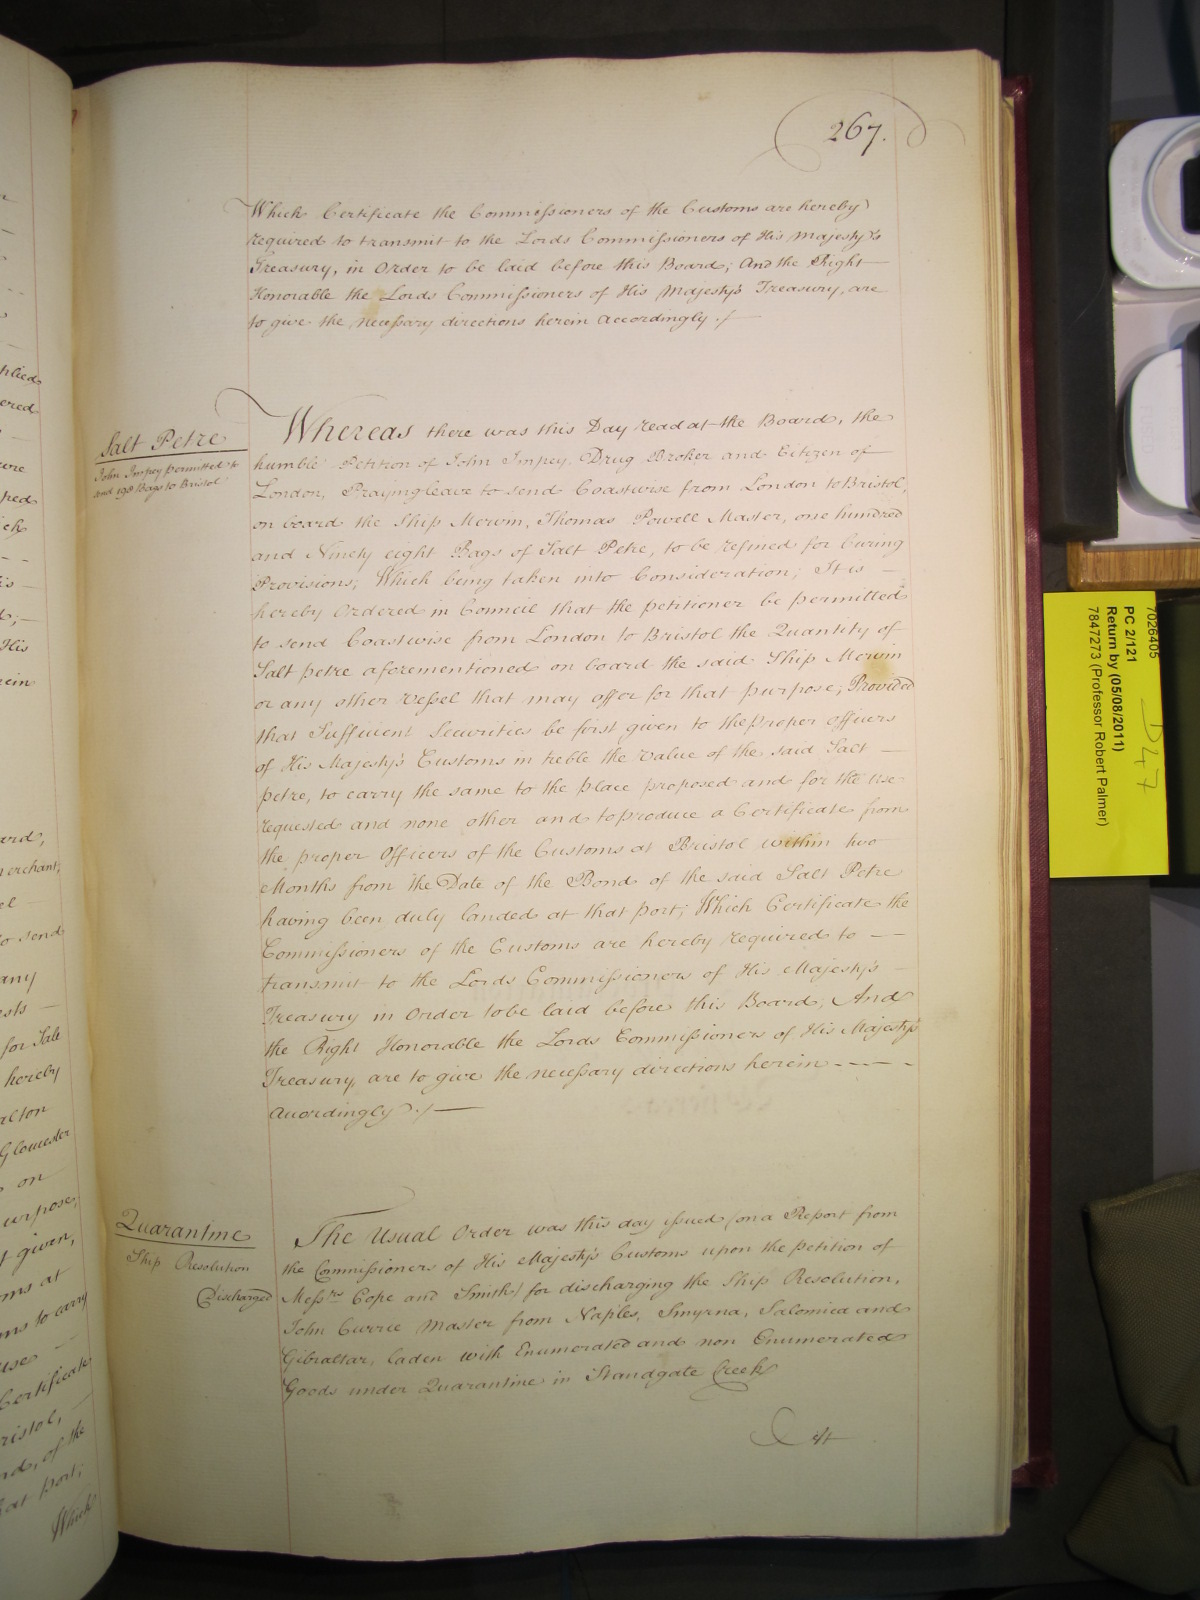 267.
Which Certificate the Commissioners of the Customs are hereby
required to transmit to the Lords Commissioners of His Majesty's
Treasury, in Order to be laid before this Board; And the Right
Honorable the Lords Commissioners of His Majesty's Treasury, are
to give the necessary directions herein accordingly ./
Salt Petre
John Impey permitted to
send 198 Bags to Bristol
Whereas there was this Day read at the Board, the
humble Petition of John Impey Drug Broker and Citizen of
London, Praying leave to send Coastwise from London to Bristol,
on board the Ship Merwin, Thomas Powell Master, one hundred
and Ninety eight Bags of Salt Petre, to be refined for Curing
Provisions; Which being taken into Consideration; It is —
hereby Ordered in Council that the petitioner be permitted
to send Coastwise from London to Bristol the Quantity of
Salt petre aforementioned on board the said Ship Merwin
or any other vessel that may offer for that purpose; Provided
that Sufficient Securities be first given to the proper officers
of His Majesty's Customs in treble the value of the said Salt —
petre, to carry the same to the place proposed and for the use
requested and none other and to produce a Certificate from
the proper Officers of the Customs at Bristol within two
Months from the Date of the Bond of the said Salt Petre
having been duly landed at that port; Which Certificate the
Commissioners of the Customs are hereby required to — —
transmit to the Lords Commissioners of His Majesty's —
Treasury in Order to be laid before this Board; And
the Right Honorable the Lords Commissioners of His Majesty's
Treasury, are to give the necessary directions herein - - - -
accordingly ./ —
Quarantine
Ship Resolution
Discharged
The Usual Order was this day issued (on a Report from
the Commissioners of His Majesty's Customs upon the petition of
Messrs Cope and Smith) for discharging the Ship Resolution,
John Currie Master from Naples, Smyrna, Salonica and
Gibraltar, laden with Enumerated and non Enumerated
Goods under Quarantine in Standgate Creek
At
7026405
PC 2/121
Return by (05/08/2011)
7847273 (Professor Robert Palmer)
D47
plied
ered
ped
ich
His
rein
ard,
merchant,
to send
any
for Sale
hereby
alton
Gloucester
on
urpose,
t given,
oms at
ons to carry
use —
Certificate
ristol, —
nd, of the
hat port;
Which